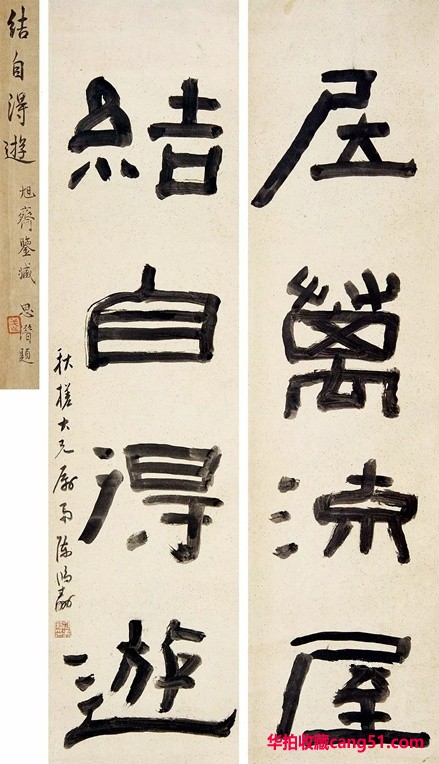 萬流屋
結自得遊
秋槎大兄屬 陳鴻壽
結自得遊
旭齋鑒藏 思潛題
华拍收藏cang51.com